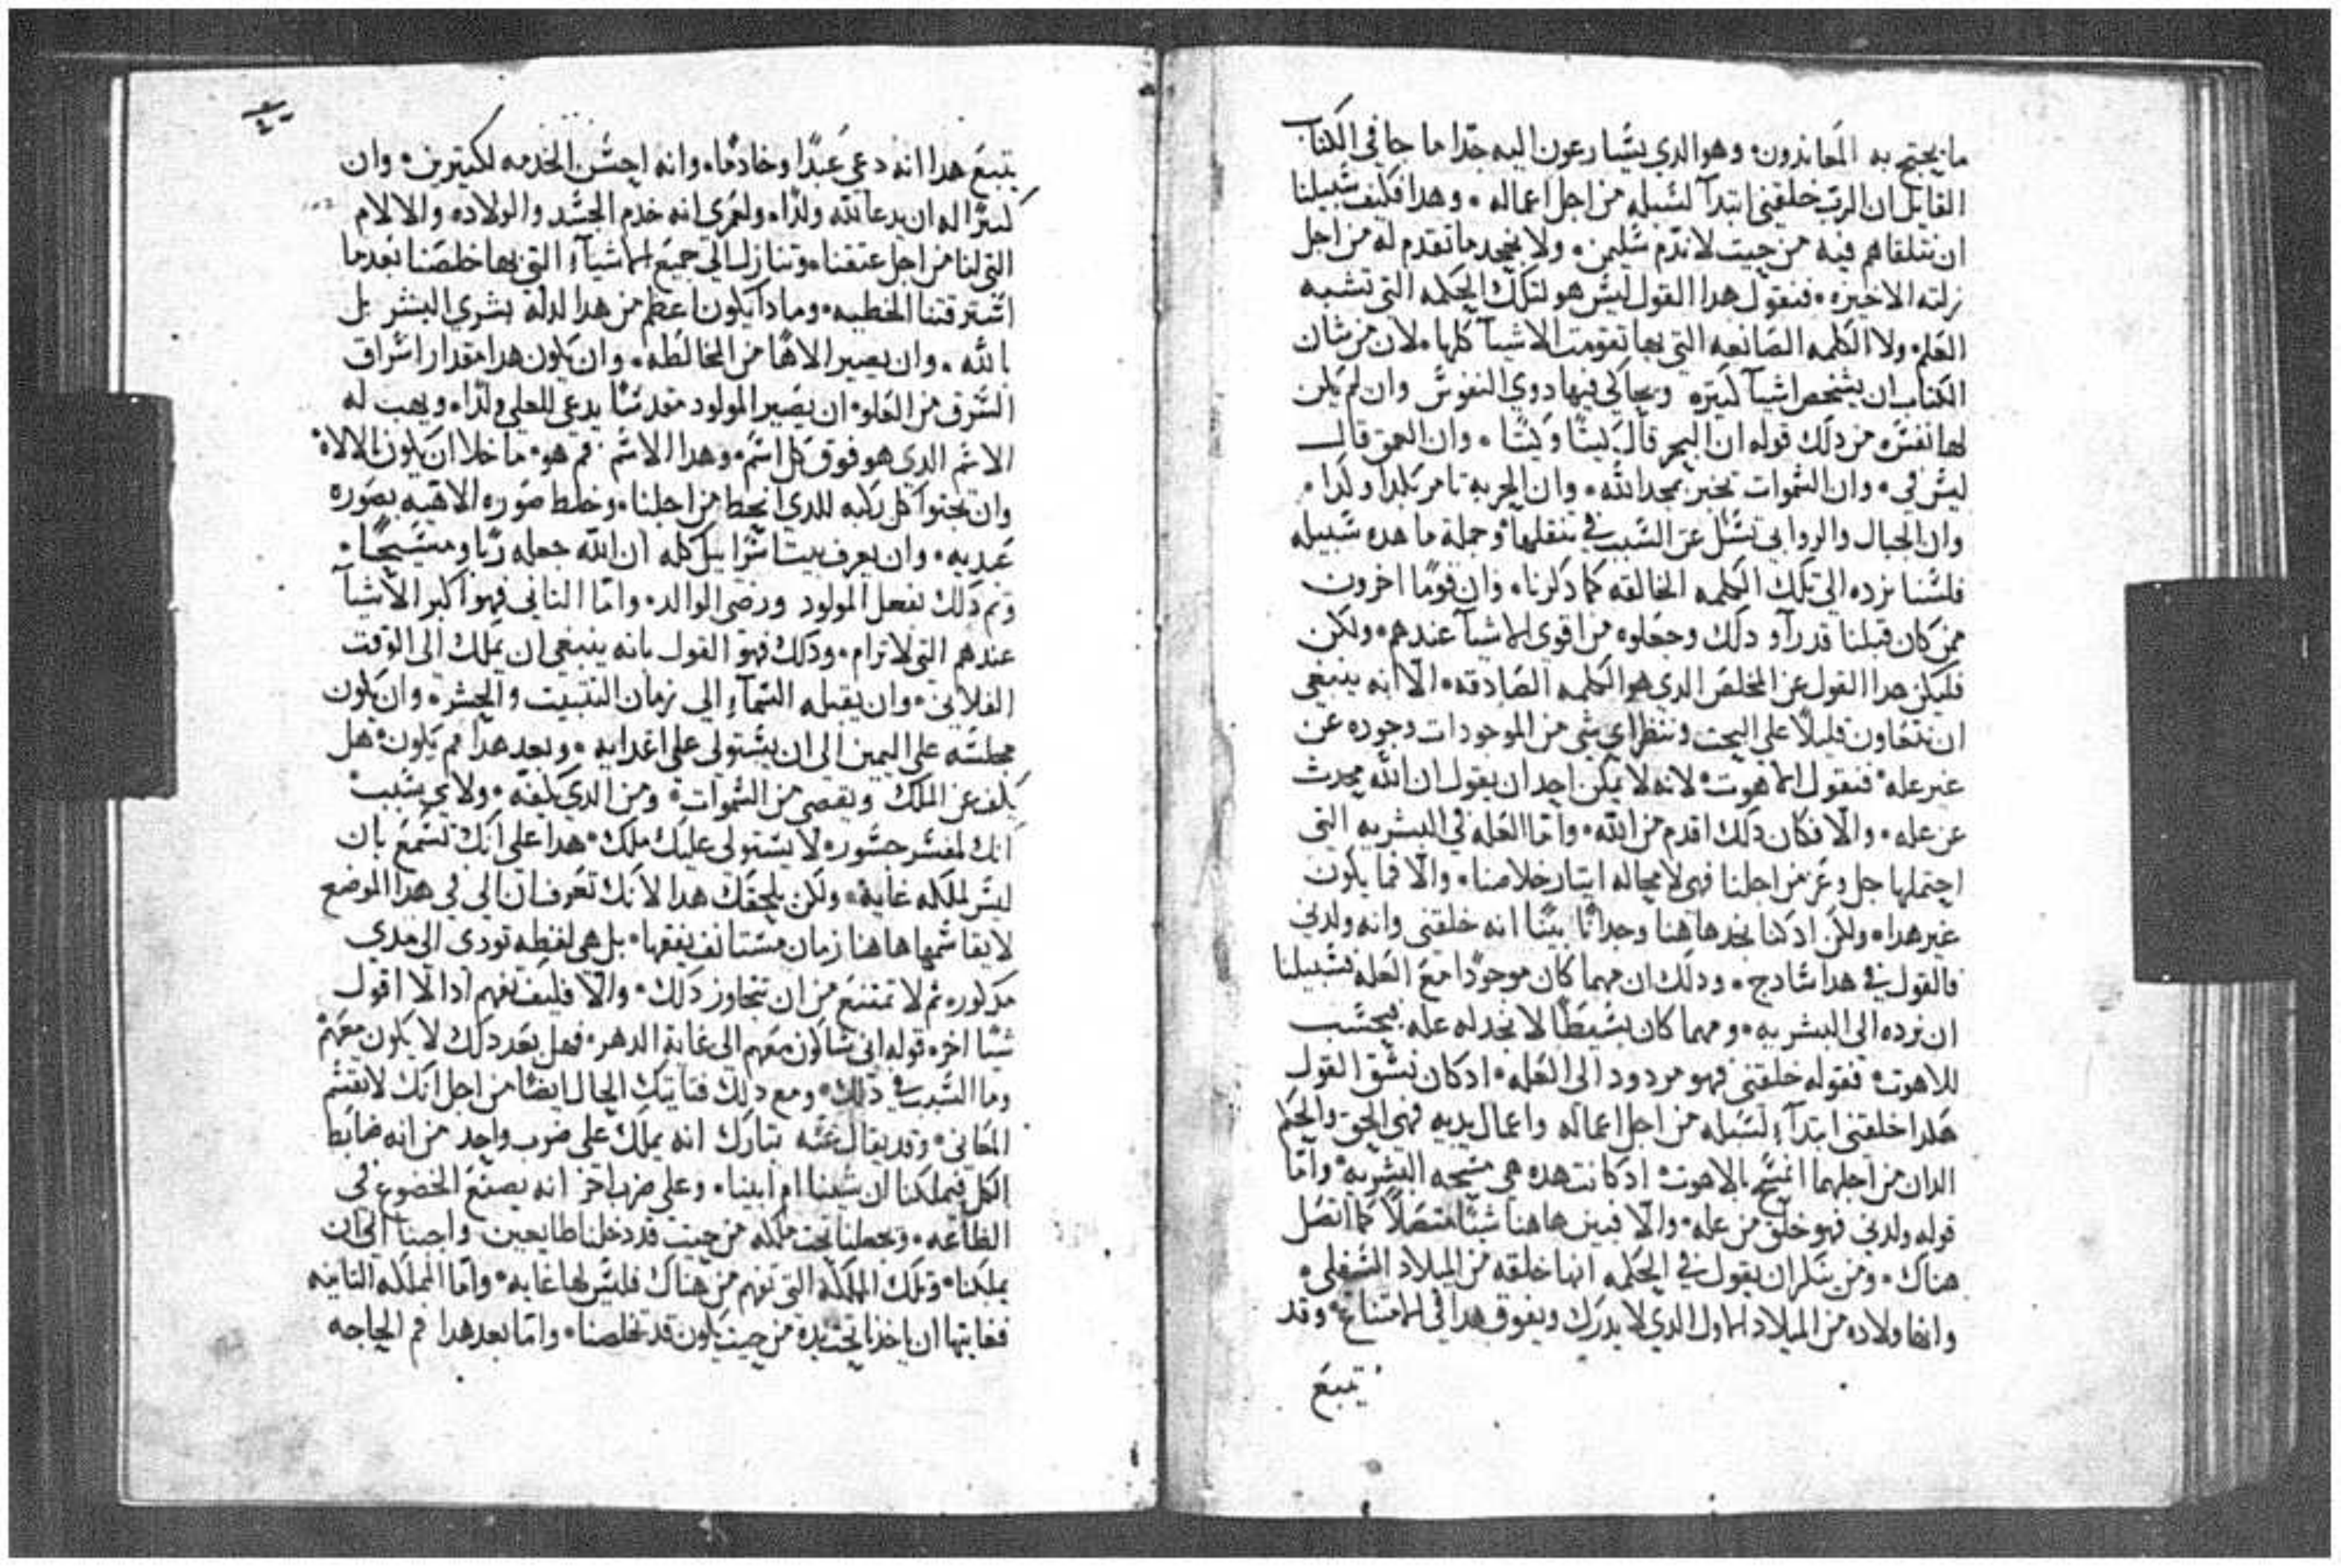 ما يحتج به المعاندون وهو الدي يسارعون اليه جدا ما جا في الكتاب
القايل ان الرب خلقني ابتدآ لسبله من اجل اعماله وهدا فكيف سبيلنا
ان نتلقاهم فيه من حيت لا ندم سليمن ولا نجحد ما تقدم له من اجل
زلته الاخيره فنقول هدا القول ليس هو لتلك الحكمه التي تشبه
العلم ولا الكلمه الصانعه التي بها تقومت الاشيآ كلها لان من شان
الكتاب ان يشخص اشيآ كتيره ويحاكي فيها دوي النفوس وان لم يكن
لها نفس من دلك قوله ان البحر قال كيتا وكيتا وان العمق قال
ليس في وان السموات تخبر بمجد الله وان الحربه تامر بكدا وكدا
وان الجبال والروابي تسل عن السبب في تنقلها وجملة ما هده سبيله
فلسنا نرده الى تلك الكلمه الخالقه كما دكرنا وان قوما اخرون
ممن كان قبلنا قد رآو دلك وجعلوه من اقوى الاشيآ عندهم ولكن
فليكن هدا القول عن المخلص الدي هو الكلمه الصادقه الا انه ينبغي
ان نتعاون قليلا على البحت وننظر اي شي من الموجودات وجوده عن
غير عله فنقول اللاهوت لانه لا يمكن احد ان يقول ان الله محدث
عن عله والا فكان دلك اقدم من الله واما العله في البشريه التي
احتملها جل وعز من اجلنا فهي لا محاله ايتار خلاصنا والا فما يكون
غير هدا ولكن اد كنا نجد هاهنا وجدانا بينا انه خلقني وانه ولدني
فالقول في هدا سادج ودلك ان مهما كان موجودا مع العله فسبيلنا
ان نرده الى البشريه ومهما كان بسيطا لا نجد له عله فيحتسب
للاهوت فقوله خلقني فهو مردود الى العله اد كان نسق القول
هكدا خلقني ابتدآ لسبله من اجل اعماله واعمال يديه فهي الحق والحكم
اللدان من اجلهما اتمسح بالاهوت اد كانت هده هي مسحه البشريه واما
قوله ولدني فهو خلق من عله والا فبين هاهنا شيا متصلا كما اتصل
هناك ومن ينكر ان يقول في الحكمه انها خلقه من الميلاد السفلي
وانها ولاده من الميلاد الاول الدي لا يدرك ويفوق هدا في الامتناع وقد
يتبع
يتبع هدا انه دعي عبدا وخادما وانه احسن الخدمه لكتيرين وان
كبيرا له ان يدعا لله ولدا ولعمري انه خدم الجسد والولاده والالام
التي لنا من اجل عتقنا وتنازل الى جميع الاشيآ التي بها خلصنا بعد ما
استرقتنا الخطيه وما دا يكون اعظم من هدا لدلة بشري البشر بل
بالله وان يصير الاها من المخالطه وان يكون هدا مقدار اشراق
الشرق من العلو ان يصير المولود مقدسا يدعى للعلي ولدا ويهب له
الاسم الدي هو فوق كل اسم وهدا الاسم فم هو ما خلا ان يكون الالاه
وان تحنوا كل ركبه للدي انحط من اجلنا وخلط صوره الالاهيه بصوره
عبديه وان يعرف بيت اسراييل كله ان الله جعله ربا ومسيحا
وتم دلك بفعل المولود ورضى الوالد واما التاني فهو اكبر الاشيآ
عندهم التي لا ترام ودلك فهو القول بانه ينبغي ان يملك الى الوقت
الفلاني وان يقبله السمآ الى زمان التتبيت والحشر وان يكون
مجلسه على اليمين الى ان يستولى على اعدايه وبعد هدا فم يكون هل
يكف عن الملك ويقصى من السموات ومن الدي يكفه ولاي سبب
انك لمفسر جسور لا يستولى عليك ملك هدا على انك تسمع بان
ليس لملكه غاية ولكن يلحقك هدا لانك تعرف ان الى في هدا الموضع
لا يقاسمها هاهنا زمان مستانف يفقها بل هي لفظه تودي الى مدي
مدكوره تم لا تمتنع من ان تتجاوز دلك والا فكيف تفهم ادا لا اقول
شيا اخر قوله اني ساكون معهم الى غاية الدهر فهل بعد دلك لا يكون معهم
وما السبب في دلك ومع دلك فتاتيك الحال ايضا من اجل انك لا تقسم
المعاني وقد يقال عنه تبارك انه يملك على ضرب واحد من انه ضابط
الكل فيملكنا ان شينا ام ابينا وعلى ضرب اخر انه يصنع الخضوع في
الطاعه وتجعلنا تحت ملكه من حيت قد دخلنا طايعين واحبنا الى ان
يملكنا وتلك المملكه التي تفهم من هناك فليس لها غايه واما المملكه التانيه
فغايتها ان ياخدنا تحت يده من حيت يكون قد تخلصنا واما بعد هدا فم الحاجه